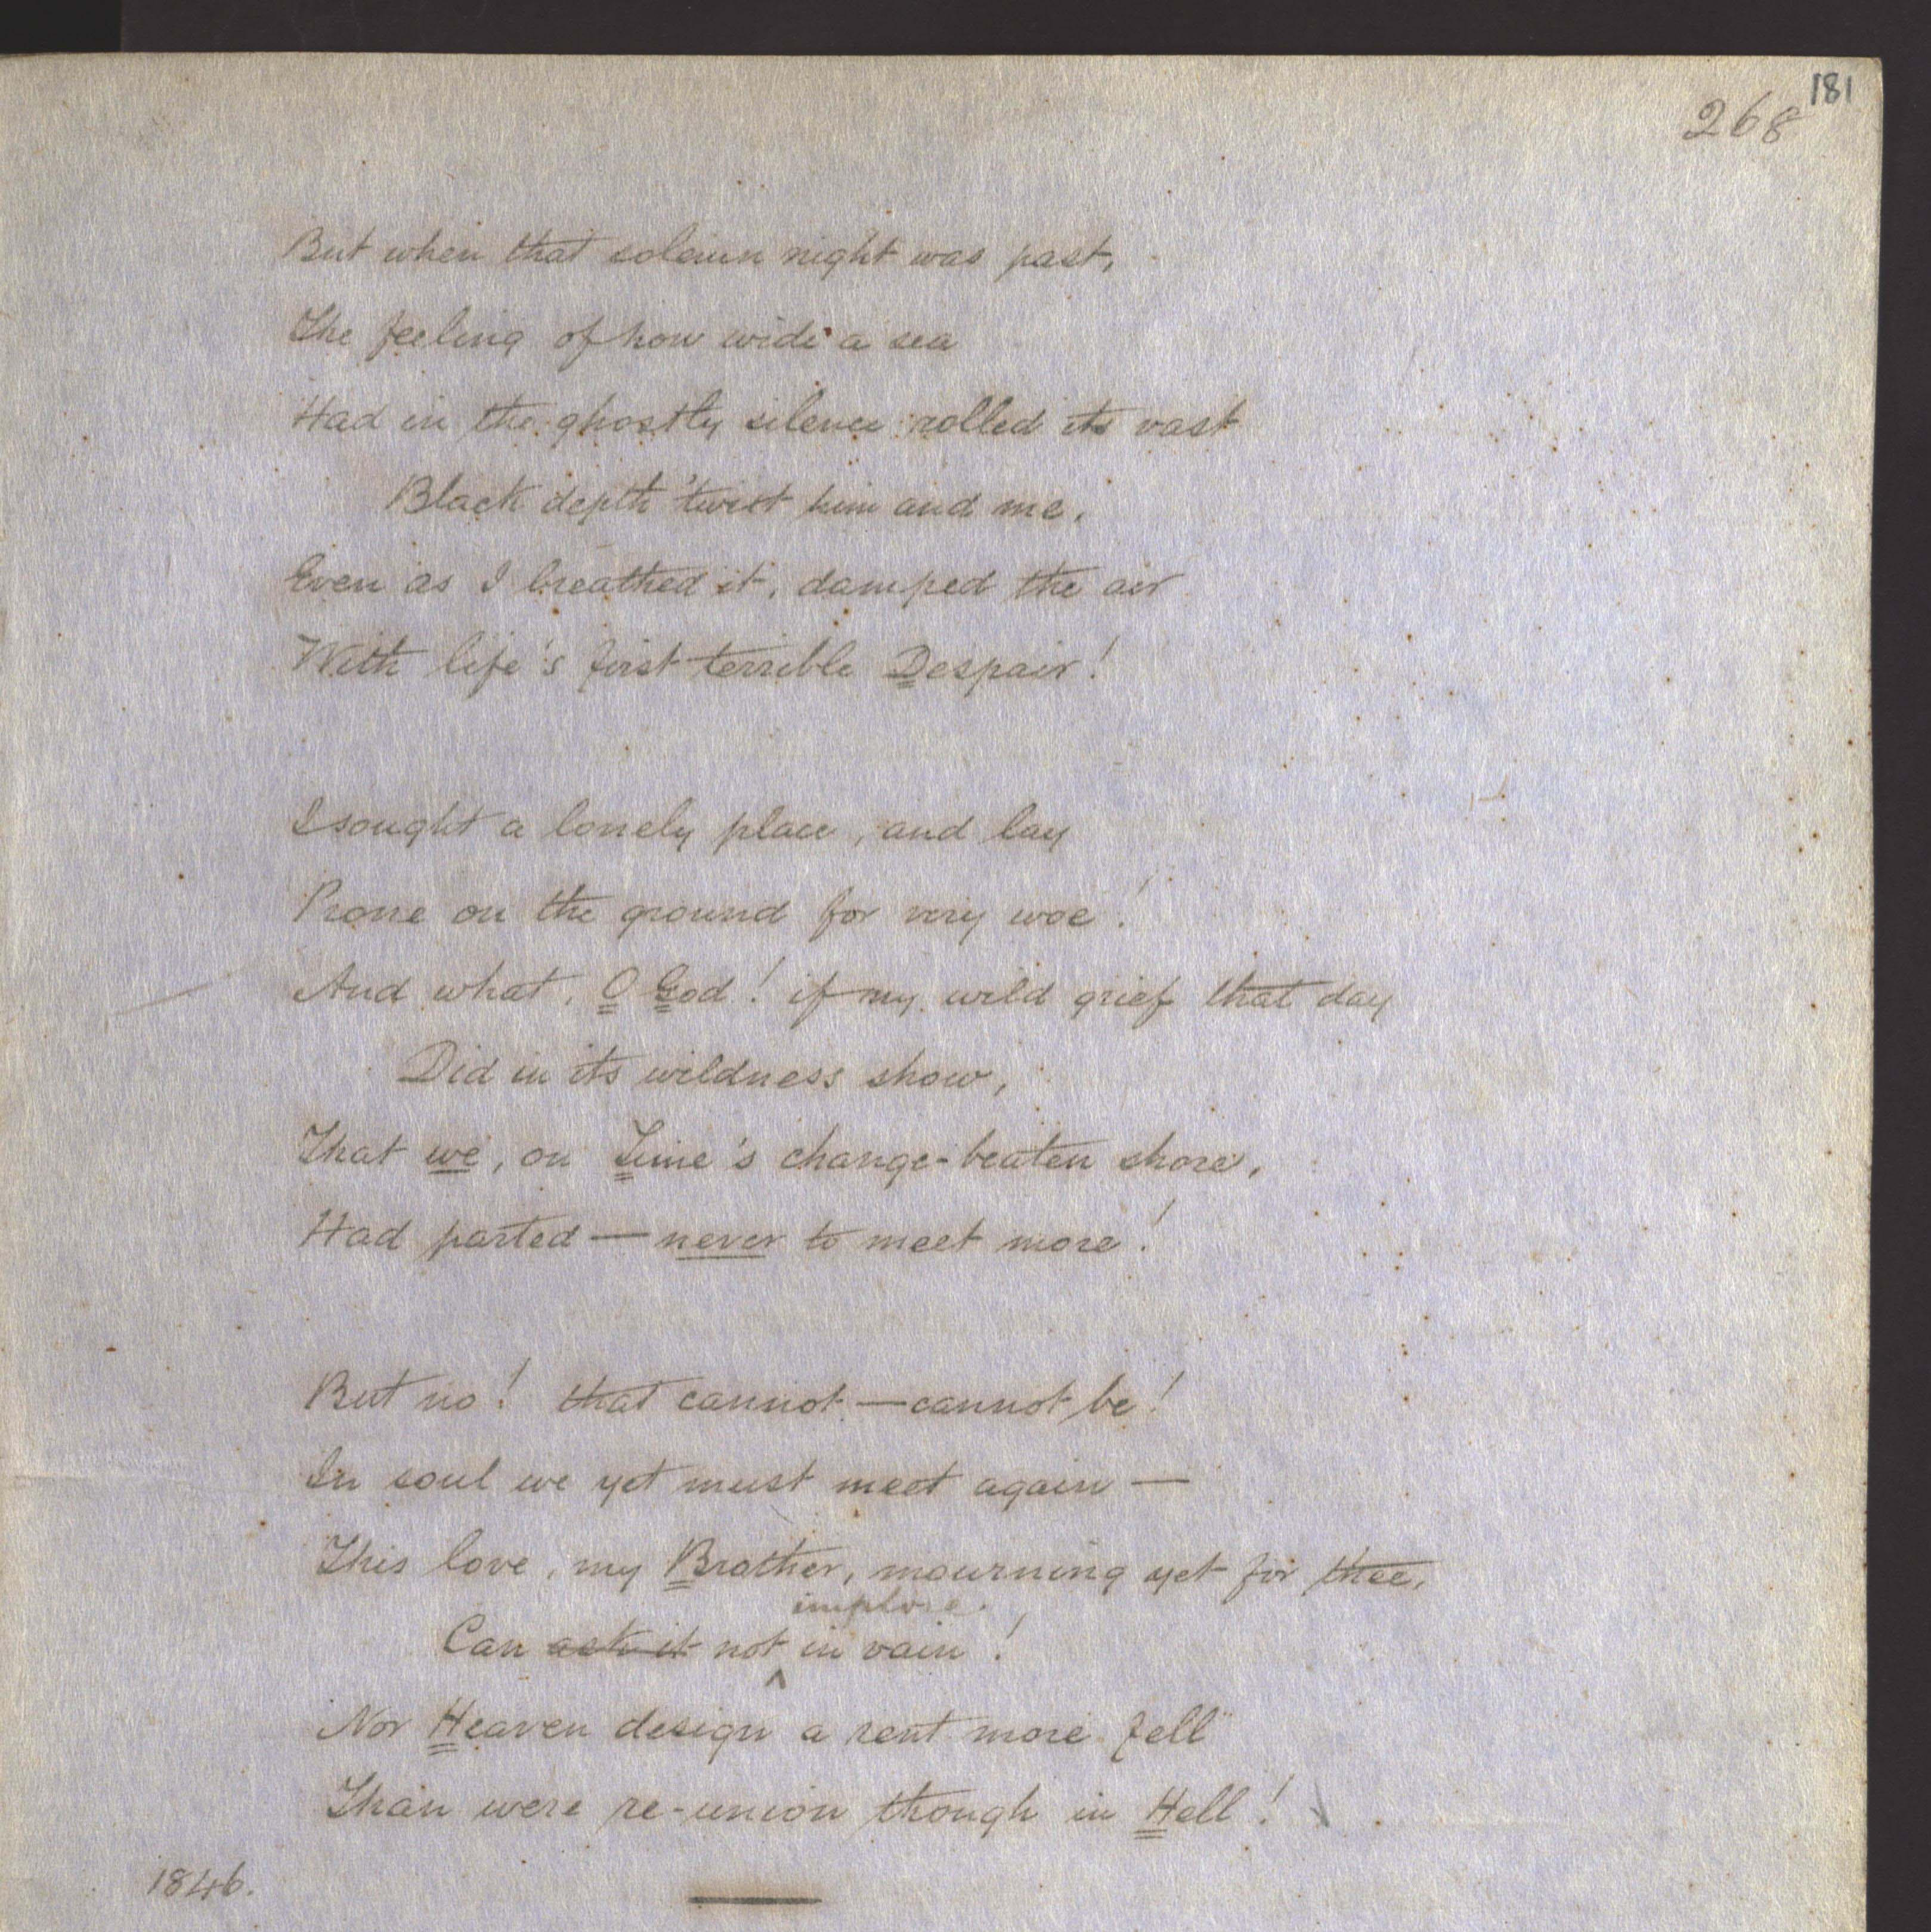 181
268
But when that solemn night was past,
The feeling of how wide a sea
Had in the ghostly silence rolled its vast
Black depth 'twixt him and me,
Even as I breathed it, damped the air
With life's first terrible Despair!
I sought a lonely place, and lay
Prone on the ground for very woe!
And what, O God! if my wild grief that day
Did in its wildness show,
That we, on Time's change-beaten shore,
Had parted — never to meet more!
But no! that cannot — cannot be!
In soul we yet must meet again —
This love, my Brother, mourning yet for thee,
implore
Can ask it not in vain!
Nor Heaven design a rent more fell
Than were re-union though in Hell!
1846.